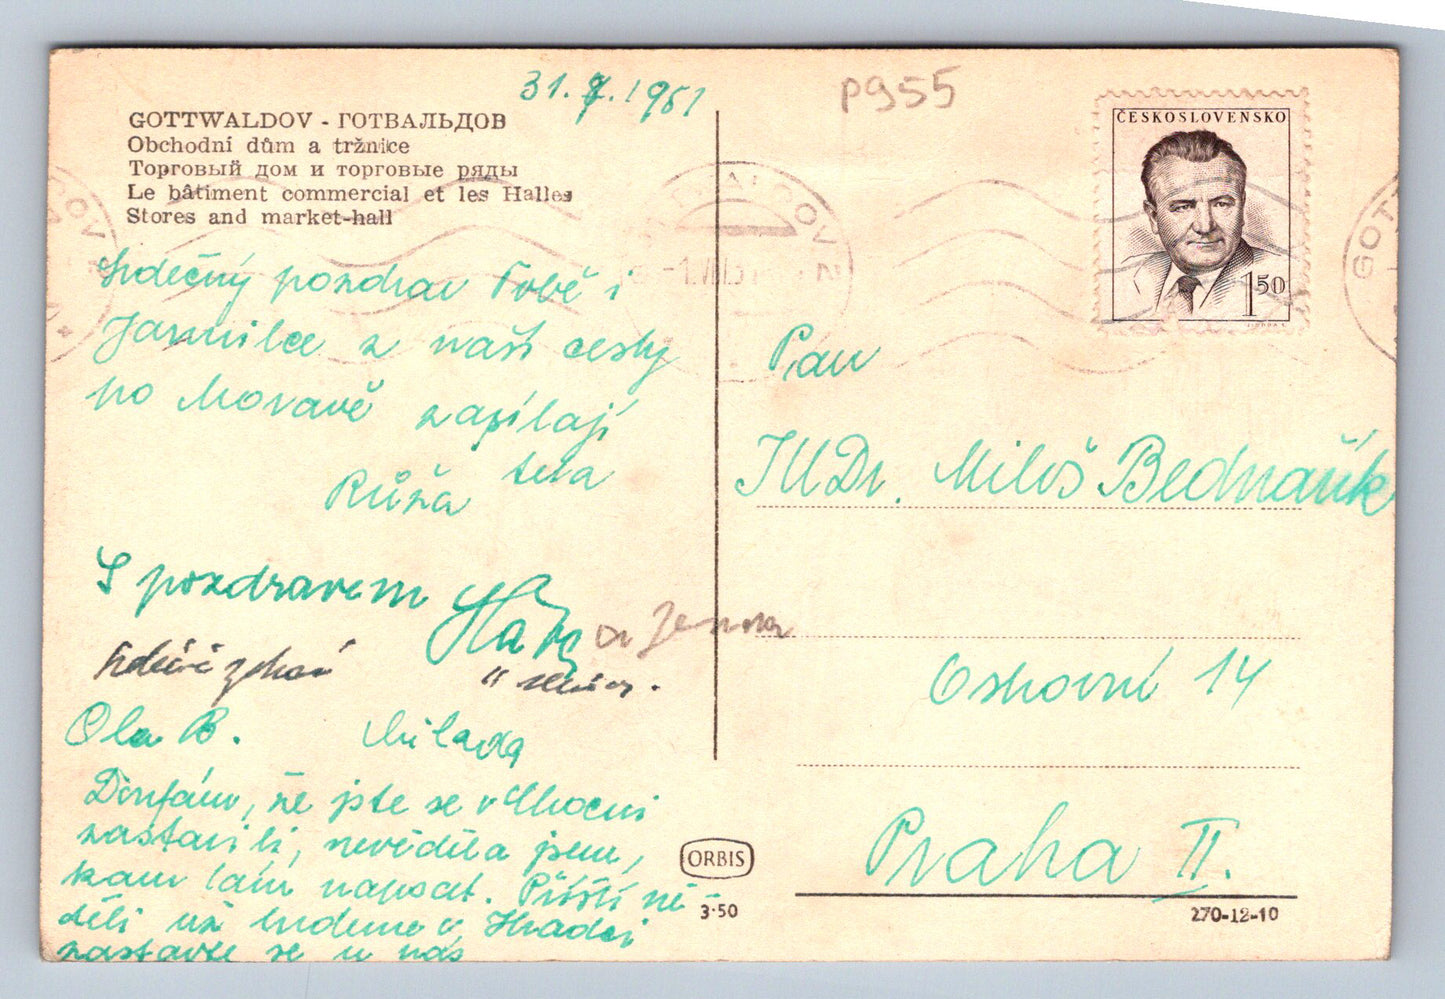 31. 7. 1951
p955
GOTTWALDOV - ГОТВАЛЬДОВ
Obchodní dům a tržnice
Торговый дом и торговые ряды
Le bâtiment commercial et les Halles
Stores and market-hall
ČESKOSLOVENSKO
1 50
Srdečný pozdrav Tobě i
Jarmilce z naší cesty
po Moravě zasílají
Růža teta
S pozdravem
a Jenda
" senior.
Ola B. Milada
Doufám, že jste se v Chocni
zastavili, nevěděla jsem,
kam Vám napsat. Příští ne-
děli už budeme v Hradci
zastavte se u nás
Pan
JUDr. Miloš Bednařík
Ostrovní 14
Praha II.
ORBIS
3·50
270-12-10